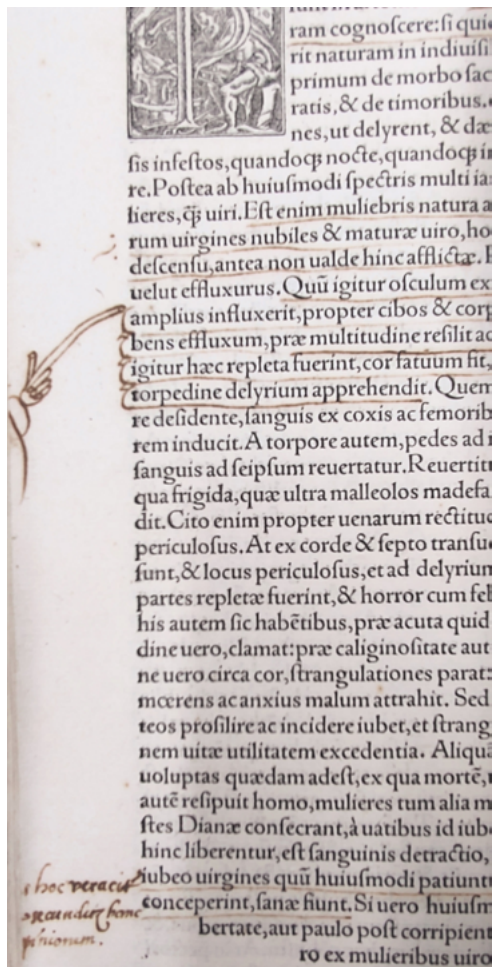 ram cognoſcere: ſi quie
rit naturam in indiuiſi
primum de morbo ſac
ratis, & de timoribus.
nes, ut delyrent, & dæ
ſis infeſtos, quandoqꝫ nocte, quandoqꝫ in
re. Poſtea ab huiuſmodi ſpectris multi ia
lieres, q̃ꝫ uiri. Eſt enim muliebris natura a
rum uirgines nubiles & maturæ uiro, ho
deſcenſu, antea non ualde hinc afflictæ.
uelut effluxurus. Quũ igitur oſculum ex
amplius influxerit, propter cibos & corp
bens effluxum, præ multitudine reſilit ac
igitur hæc repleta fuerint, cor fatuum fit,
torpedine delyrium apprehendit. Quem
re deſidente, ſanguis ex coxis ac femorib
rem inducit. A torpore autem, pedes ad i
ſanguis ad ſeipſum reuertatur. Reuertitu
qua frigida, quæ ultra malleolos madefa
dit. Cito enim propter uenarum rectituc
periculoſus. At ex corde & ſepto tranſue
ſunt, & locus periculoſus, et ad delyrium
partes repletæ fuerint, & horror cum feb
his autem ſic habẽtibus, præ acuta quid
dine uero, clamat: præ caliginoſitate aut
ne uero circa cor, ſtrangulationes parat:
mœrens ac anxius malum attrahit. Sed
teos proſilire ac incidere iubet, et ſtrang
nem uitæ utilitatem excedentia. Aliquã
uoluptas quædam adeſt, ex qua mortẽ,
autẽ reſipuit homo, mulieres tum alia m
ſtes Dianæ conſecrant, à uatibus id iube
hinc liberentur, eſt ſanguinis detractio,
iubeo uirgines quũ huiuſmodi patiuntu
conceperint, ſanæ fiunt. Si uero huiuſm
bertate, aut paulò poſt corripient
ro ex mulieribus uiro
hoc